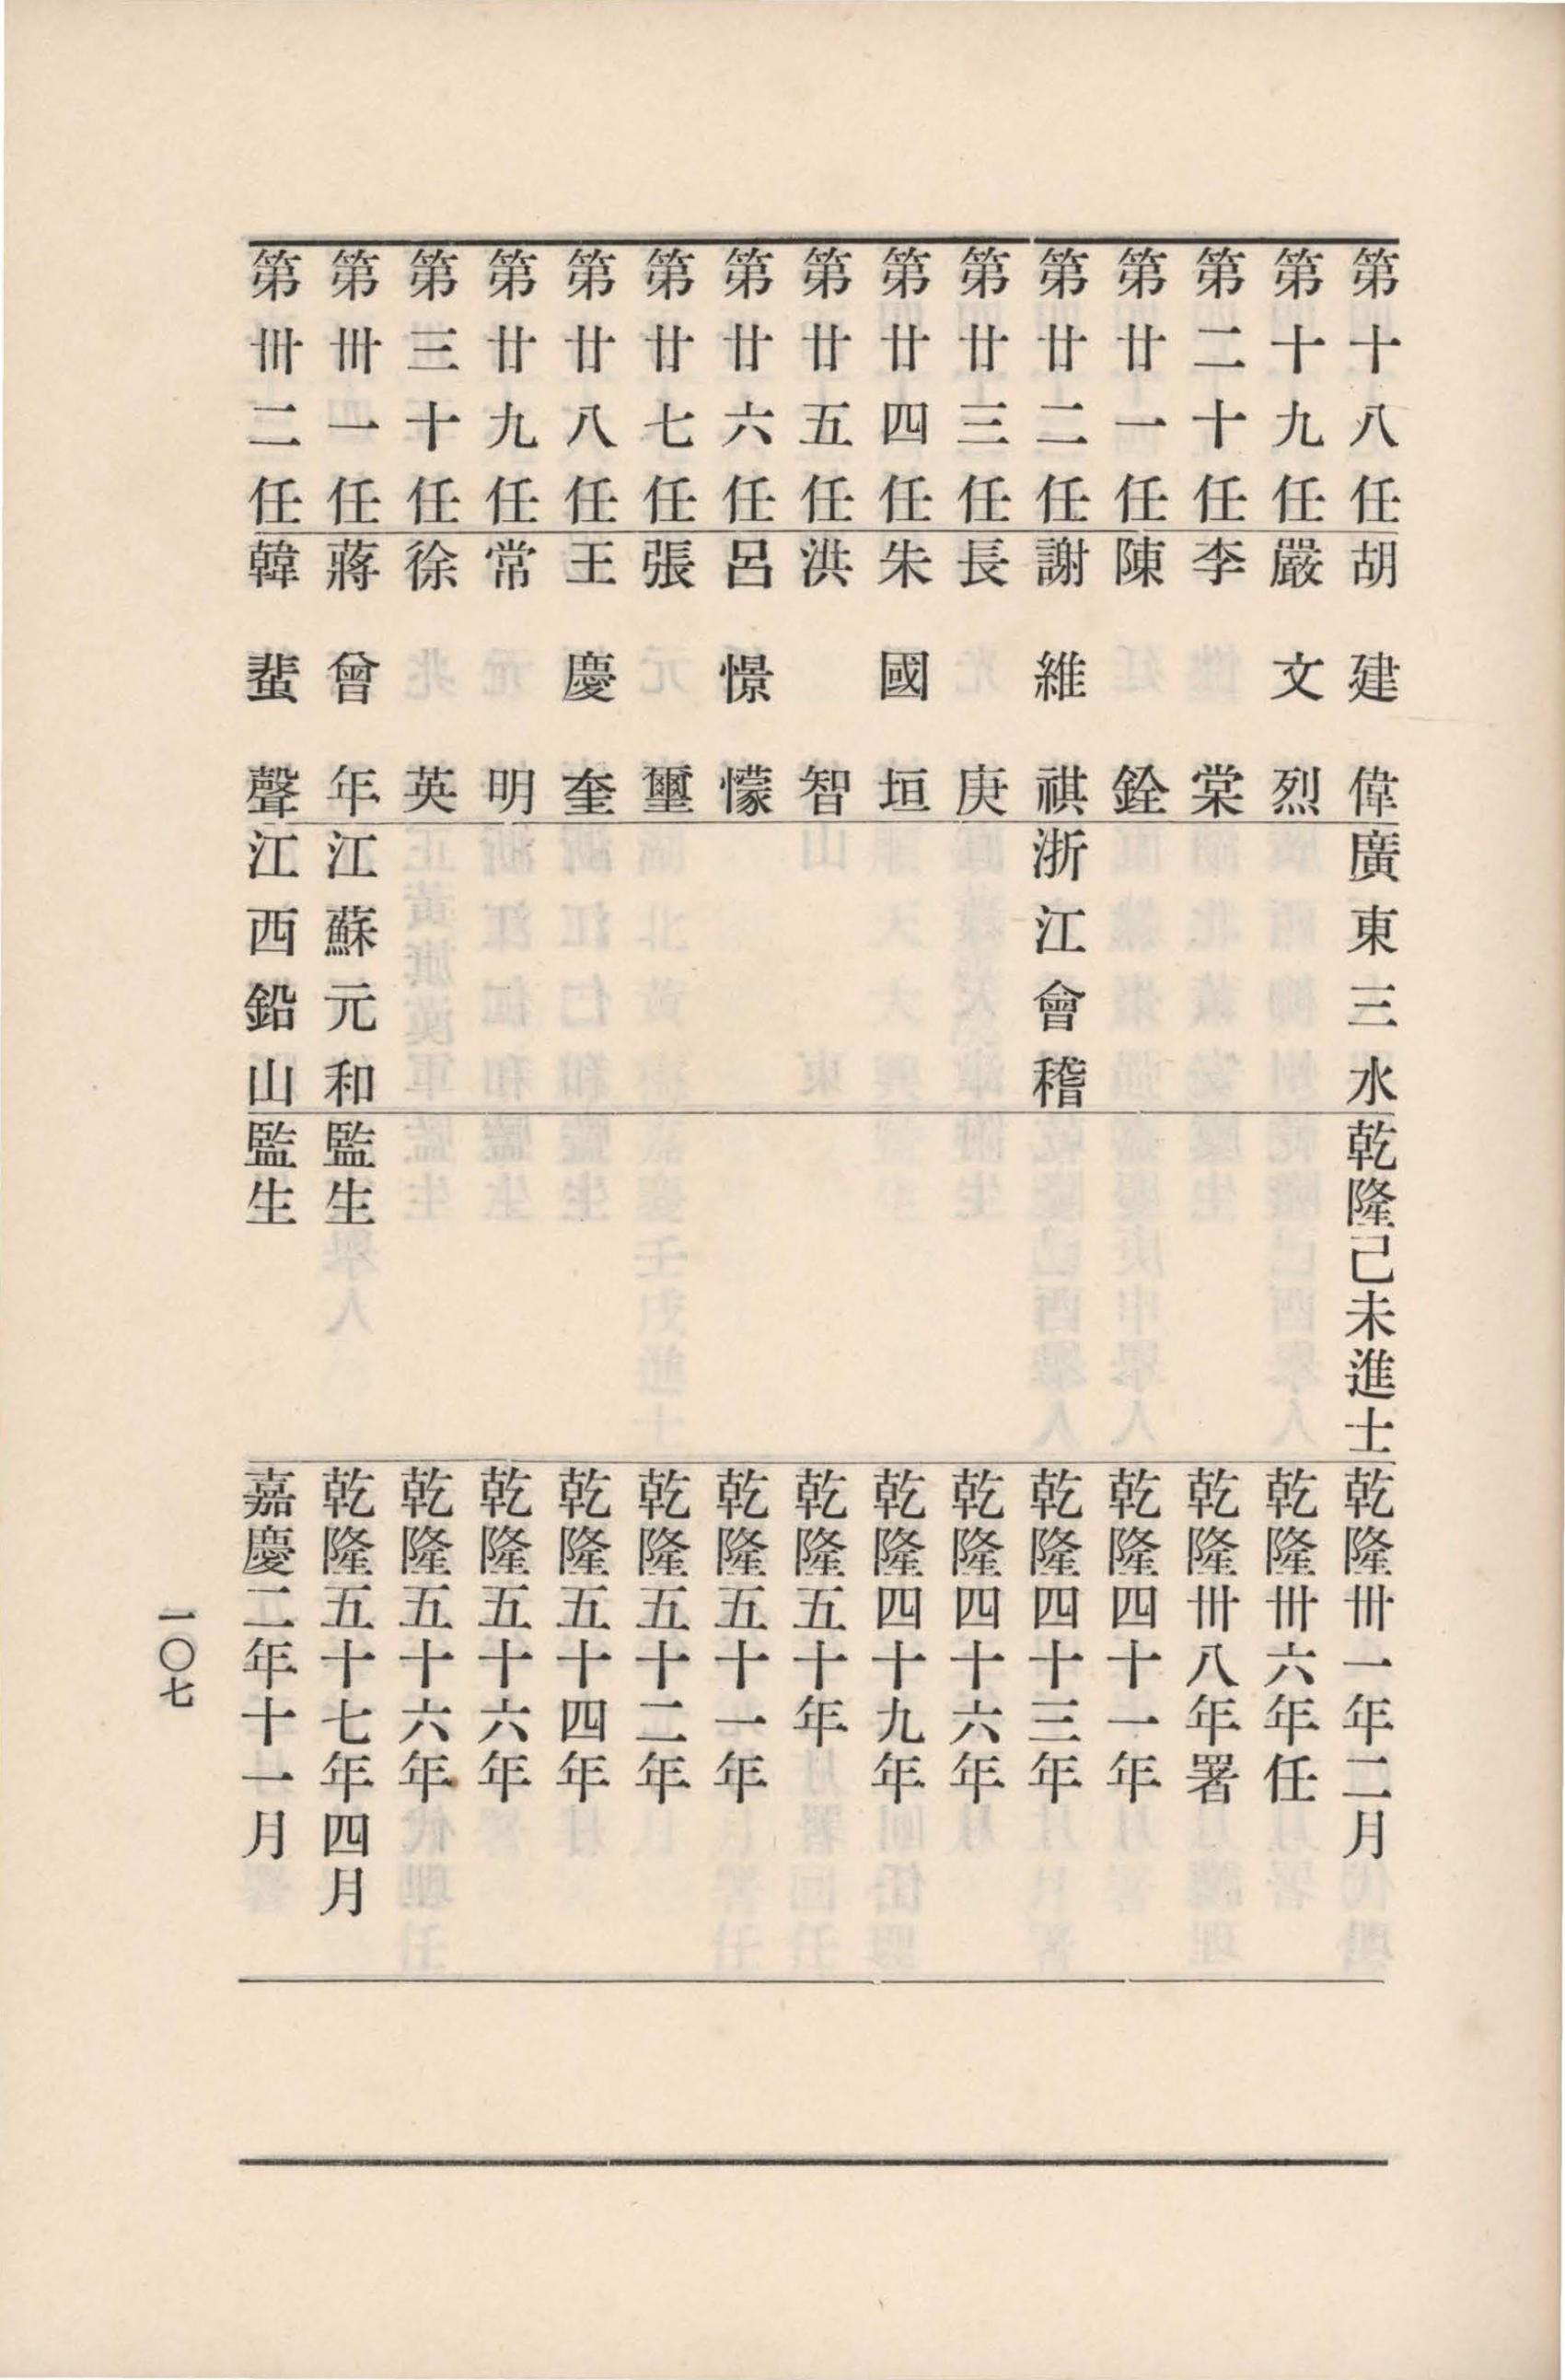 第十八任胡建偉廣東三水乾隆己未進士乾隆卅一年二月
第十九任嚴文烈乾隆卅六年任
第二十任李棠乾隆卅八年署
第廿一任陳銓乾隆四十一年
第廿二任謝維祺浙江會稽乾隆四十三年
第廿三任長庚乾隆四十六年
第廿四任朱國垣乾隆四十九年
第廿五任洪智乾隆五十年
第廿六任呂憬懞乾隆五十一年
第廿七任張璽乾隆五十二年
第廿八任王慶奎乾隆五十四年
第廿九任常明乾隆五十六年
第三十任徐英乾隆五十六年
第卅一任蔣曾年江蘇元和監生乾隆五十七年四月
第卅二任韓蜚聲江西鉛山監生嘉慶二年十一月
一〇七